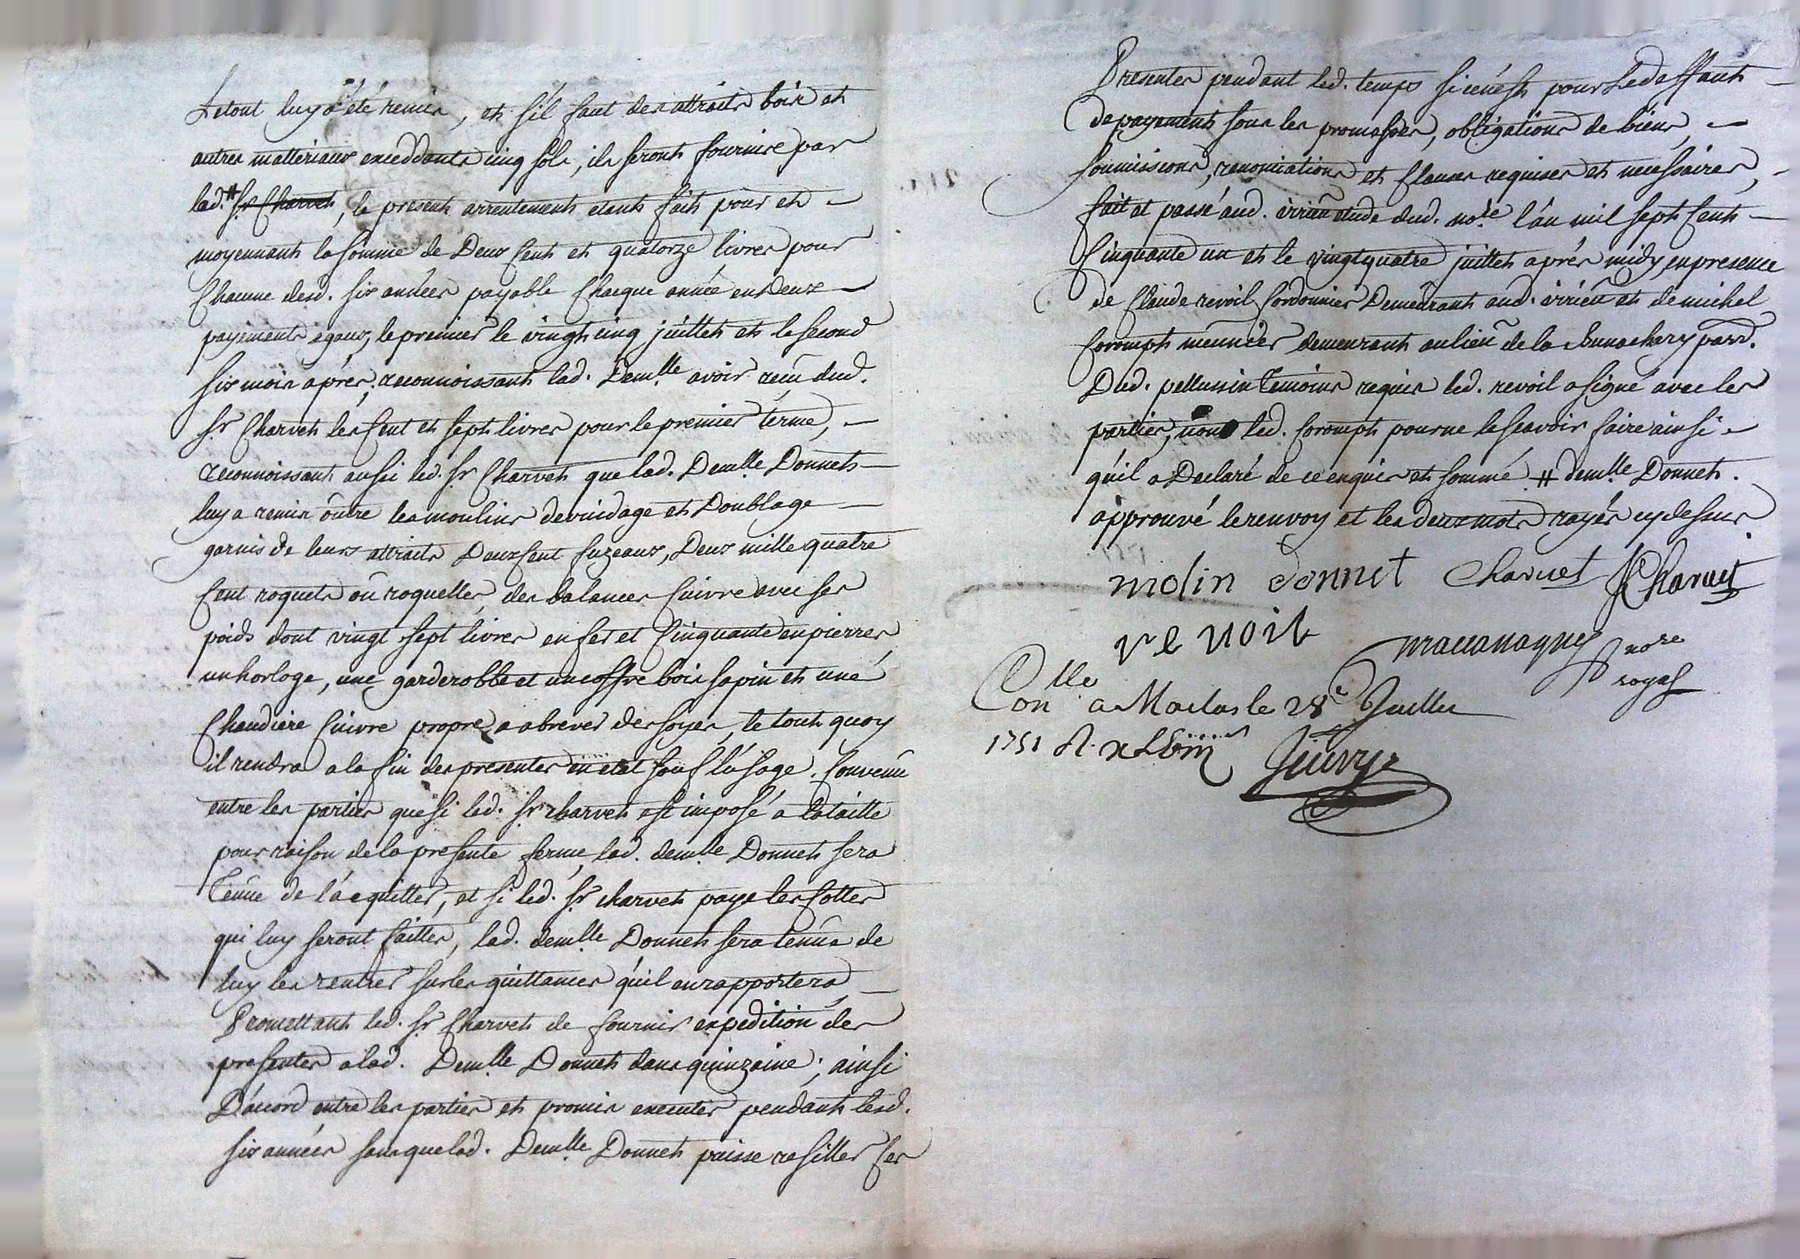 Le tout luy a été remis, et s'il faut des attraits bois et
autres matteriaux exceddants cinq sols, ils seront fournirs par
lad. # Sr Charvet, le present arrentement etant fait pour et
moyennant la somme de Deux Cent et quatorze livres pour
Chacune desd. six années payable Chaque année en Deux
payements egaux, le premier le vingt cinq juillet et le second
six mois après, reconnoissant lad. Demlle avoir reçu dud.
Sr Charvet les Cent et sept livres pour le premier terme,
reconnoissant aussi led. Sr Charvet que lad. Demlle Donnet
luy a remis outre les moulins devuidage et Doublage
garnis de leurs attraits Deux Cent fuzeaux, Deux mille quatre
Cent roquets ou roquelles, des balances Cuivre avec ses
poids dont vingt sept livres en fer et Cinquante en pierres
un horloge, une garderobbe et un coffre bois sapin et une
Chaudiere Cuivre propre a abrever des soyes, le tout quoy
il rendra a la fin des presentes en etat sauf l'usage. Convenu
entre les parties que si led. Sr Charvet est imposé a la taille
pour raison de la presente ferme, lad. demlle Donnet sera
Tenue de l'acquitter, et si led. Sr Charvet paye les Cottes
qui luy seront faittes, lad. demlle Donnet sera tenüe de
luy les rentrer sur les quittances qu'il en rapportera
Promettant led. Sr Charvet de fournir expedition des
presentes a lad. Demlle Donnet dans quinzaine; ainsi
D'accord entre les parties et promis executer pendant lesd.
six années sans que lad. Demlle Donnet puisse resillier ces
Presentes pendant led. temps si ce n'est pour led. deffaut
de payements sous les promesses, obligations de biens,
soumissions, renonciations et Clauses requises et necessaires,
fait et passé aud. virieu etude dud. nore l'an mil sept Cent
Cinquante un et le vingt quatre juillet après midy en presence
de Claude revoil Cordonnier Demeurant aud. virieu et de michel
Coromph meunier demeurant au lieu de la par.
Dud. pellussin temoins requis led. revoil a signé avec les
parties, non led. Coromph pour ne le sçavoir faire ainsi
qu'il a Declaré de ce enquis et sommé # demlle Donnet.
approuvé le renvoy et les deux mots rayés cy dessus
molin donnet Charvet JCharvet
revoil
nore
royal
Conlle a Maclas le 28e Juillet
1751 R.